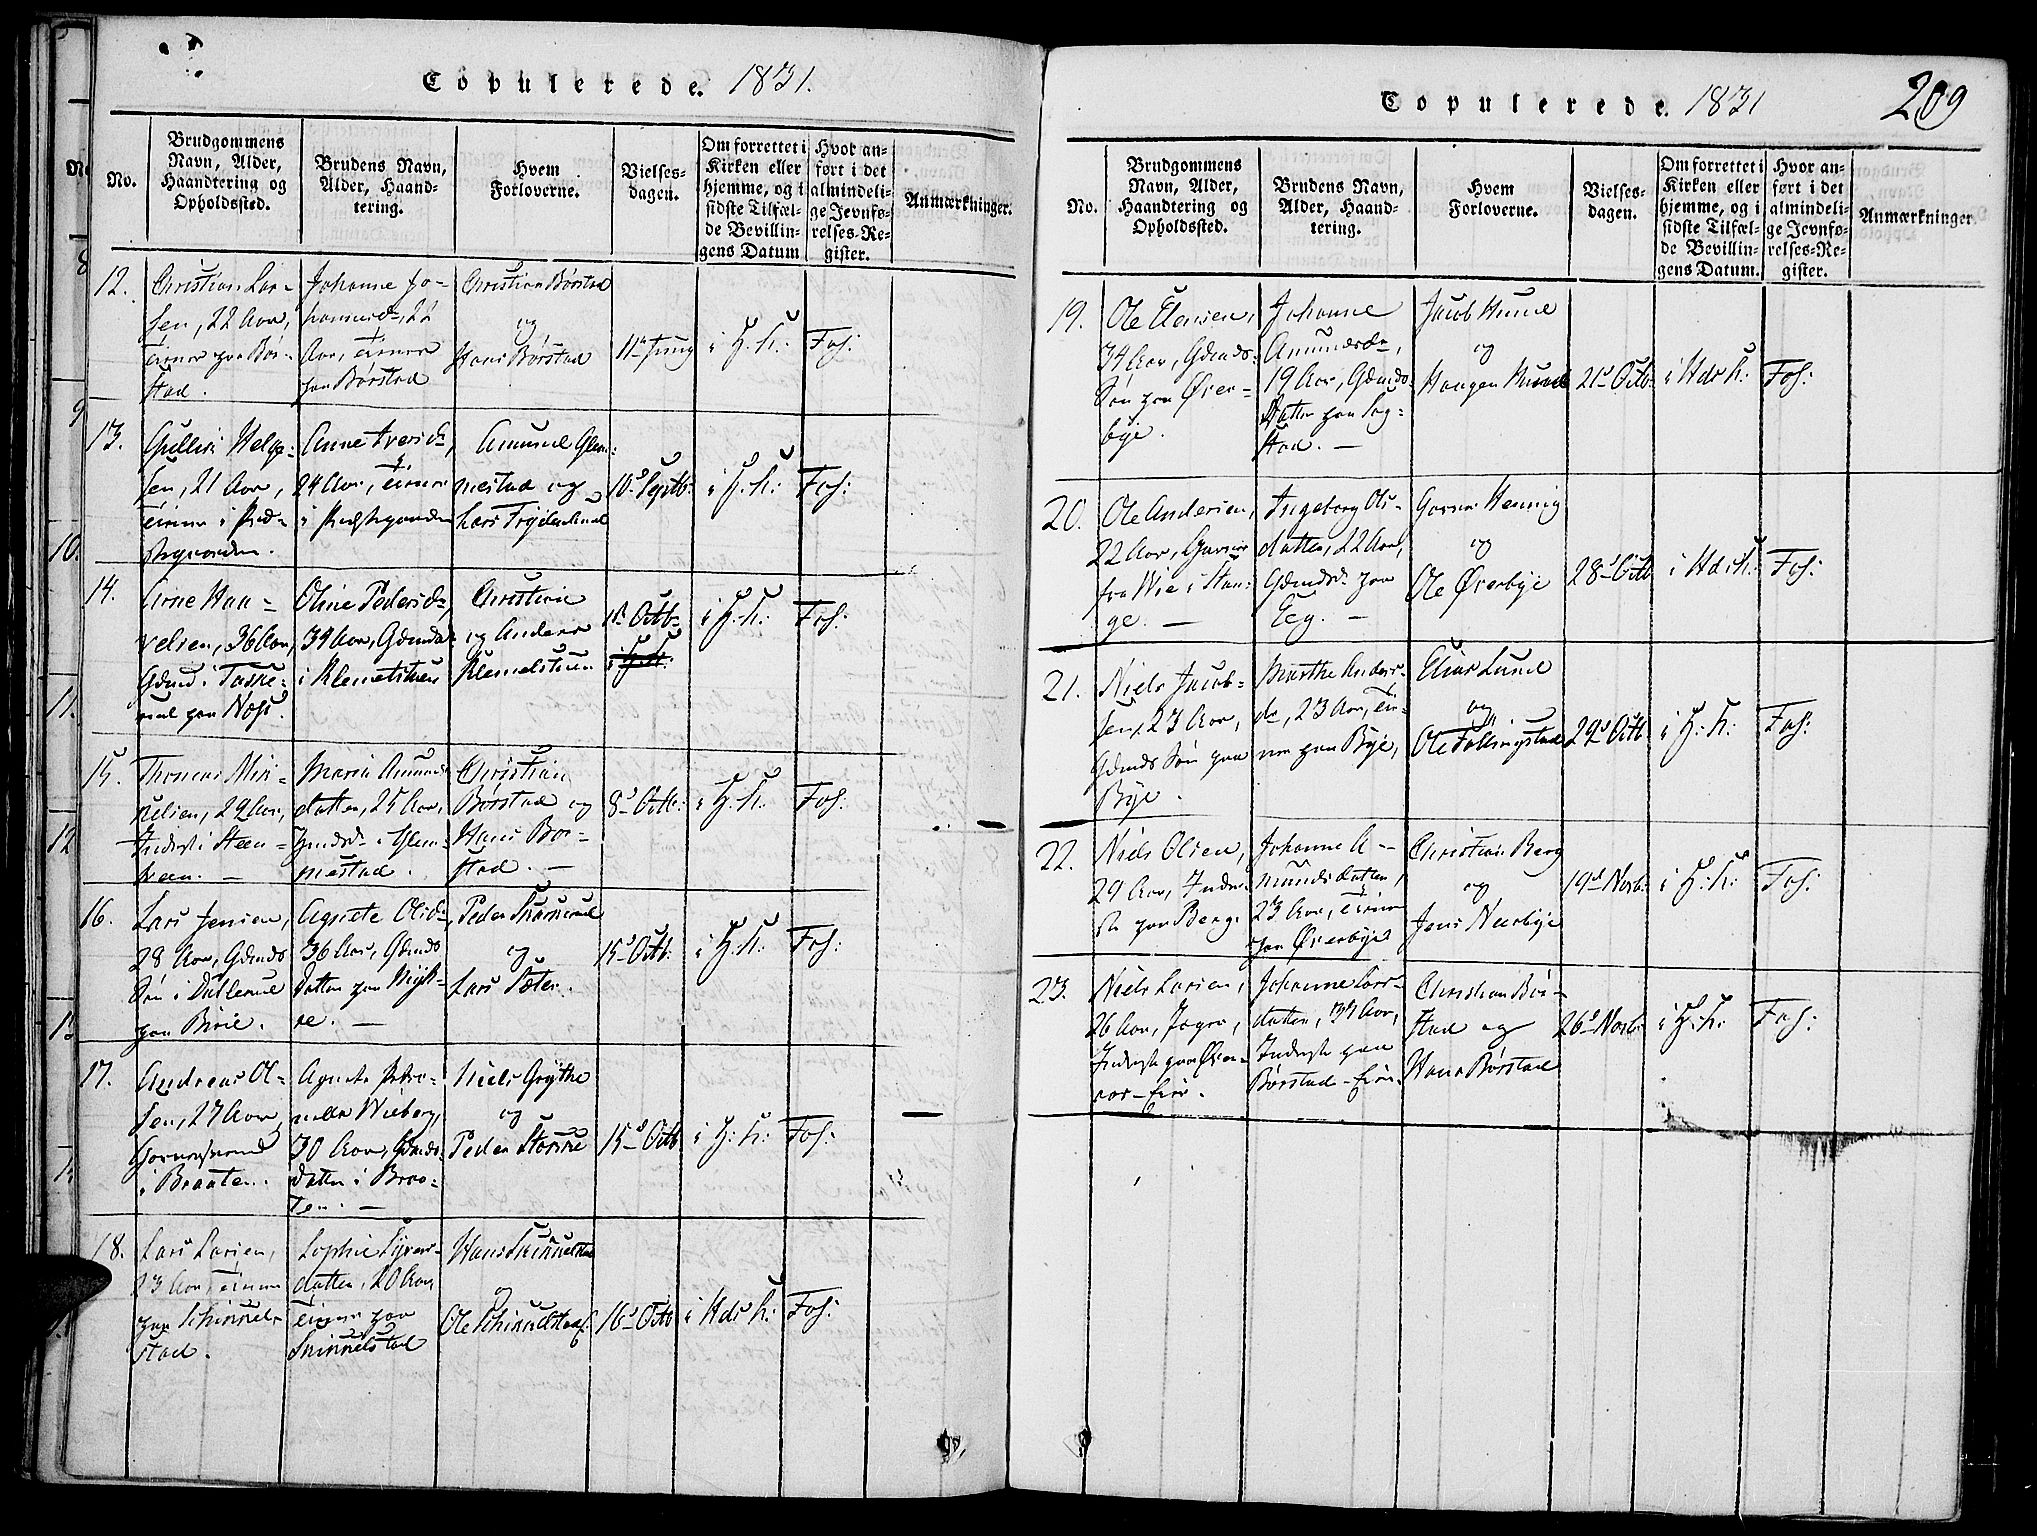 Copulerede. 1831.
No.
Brudgommens
Navn, Alder,
Haandtering og
Opholdssted.
Brudens Navn,
Alder, Haand-
tering.
Hvem
Forloverne.
Vielses-
dagen.
Om forrettet i
Kirken eller
hjemme, og i
sidste Tilfæl-
de Bevillin-
gens Datum
Hvor an-
ført i det
almindeli-
ge Jevnfø-
relses-Re-
gister.
Anmærkninger.
12.
Christian Lar-
sen, 22 Aar,
paa Bør-
stad.
Johanne Jo-
22
Aar,
paa Børstad
Christian Børstad
og
Hans Børstad
11te Juny
i H: K:
Foh:
13.
Gulbr: Helge-
sen, 21 Aar,
i Præ-
Anne Iversd
24 Aar,
i Præstegaarden
Amund Glem-
mestad og
Lars
10d Septb:
i H: K:
Foh:
14.
Arne Haa-
velsen, 36 Aar,
paa Næss.
Oline Pedersd
34 Aar,
i Klemetstuen
Christian
og Anders
Klemetstuen
1te Octb
i H: K:
i H: K:
Foh:
15.
Thomas Mik-
kelsen, 29 Aar,
Inderst i Steen-
Maria Amunds
datter, 25 Aar,
i Glem-
mestad.
Christian
Børstad og
Hans Bør-
stad. —
8d Octb:
i H: K:
Foh:
16.
Lars Jensen,
28 Aar, Gdmds
Søn i
paa Birie.
Agnete Olsd
36 Aar, Gdmds
Datter paa Myk-
re. —
Peder
og
Lars Sæter.
15d Octb:
i H: K:
Foh:
17.
Andreas Ol-
sen, 27 Aar
i Braaten.
Agnete Petro-
nelle Wieberg
30 Aar, Gdmds
datter i Braa-
ten. —
Niels Grythe
og
Peder
15d Octb
i H: K:
Foh:
18.
Lars Larsen,
23 Aar,
paa Skinnels-
stad.
Sophie Syvers-
datter, 20 Aar,
paa
Skinnelstad
Hans Skinnelstad
og
Ole Skinnelstad.
16d Octb
i Hds K:
Foh:
Copulerede. 1831
209
No.
Brudgommens
Navn, Alder,
Haandtering og
Opholdssted.
Brudens Navn,
Alder, Haand-
tering.
Hvem
Forloverne.
Vielses-
dagen.
Om forrettet i
Kirken eller
hjemme, og i
sidste Tilfæl-
de Bevillin-
gens Datum.
Hvor an-
ført i det
almindeli-
ge Jevnfø-
relses-Re-
gister.
Anmærkninger.
19.
Ole
34 Aar, Gdmds:
Søn paa Øver-
bye.
Johanne
Amundsd,
19 Aar, Gdmds
Datter paa Sog-
stad. —
Jacob Hund
og
Haagen Hund
21d Octb:
i Hds K:
Foh:
20.
Ole Andersen,
22 Aar,
fra Wie i Stan-
ge. —
Ingeborg Ols-
datter, 22 Aar,
Gdmdsd paa
Eeg. —
Hennig
og
Ole Øverbye
28d Octb
i Hds K:
Foh:
21.
Niels Jacob-
sen, 23 Aar,
Gdmds Søn paa
Bye.
Marthe Anders-
d, 23 Aar,
paa Bye,
Elias Lund
og
Ole Fallingstad
29d Octb
i H: K:
Foh:
22.
Niels Olsen,
29 Aar, Inder-
st paa Berg.
Johanne A-
mundsdatter,
23 Aar,
paa Øverbye
Christian Berg
og
Jens Nærbye
19d Novb:
i H: K:
Foh:
23.
Niels Larsen,
26 Aar,
Inderst paa
Johanne Lars-
datter, 34 Aar,
Inderst paa
Børstad-Eier.
Christian Bør-
stad og
Hans Børstad
26d Novb:
i H: K:
Foh: